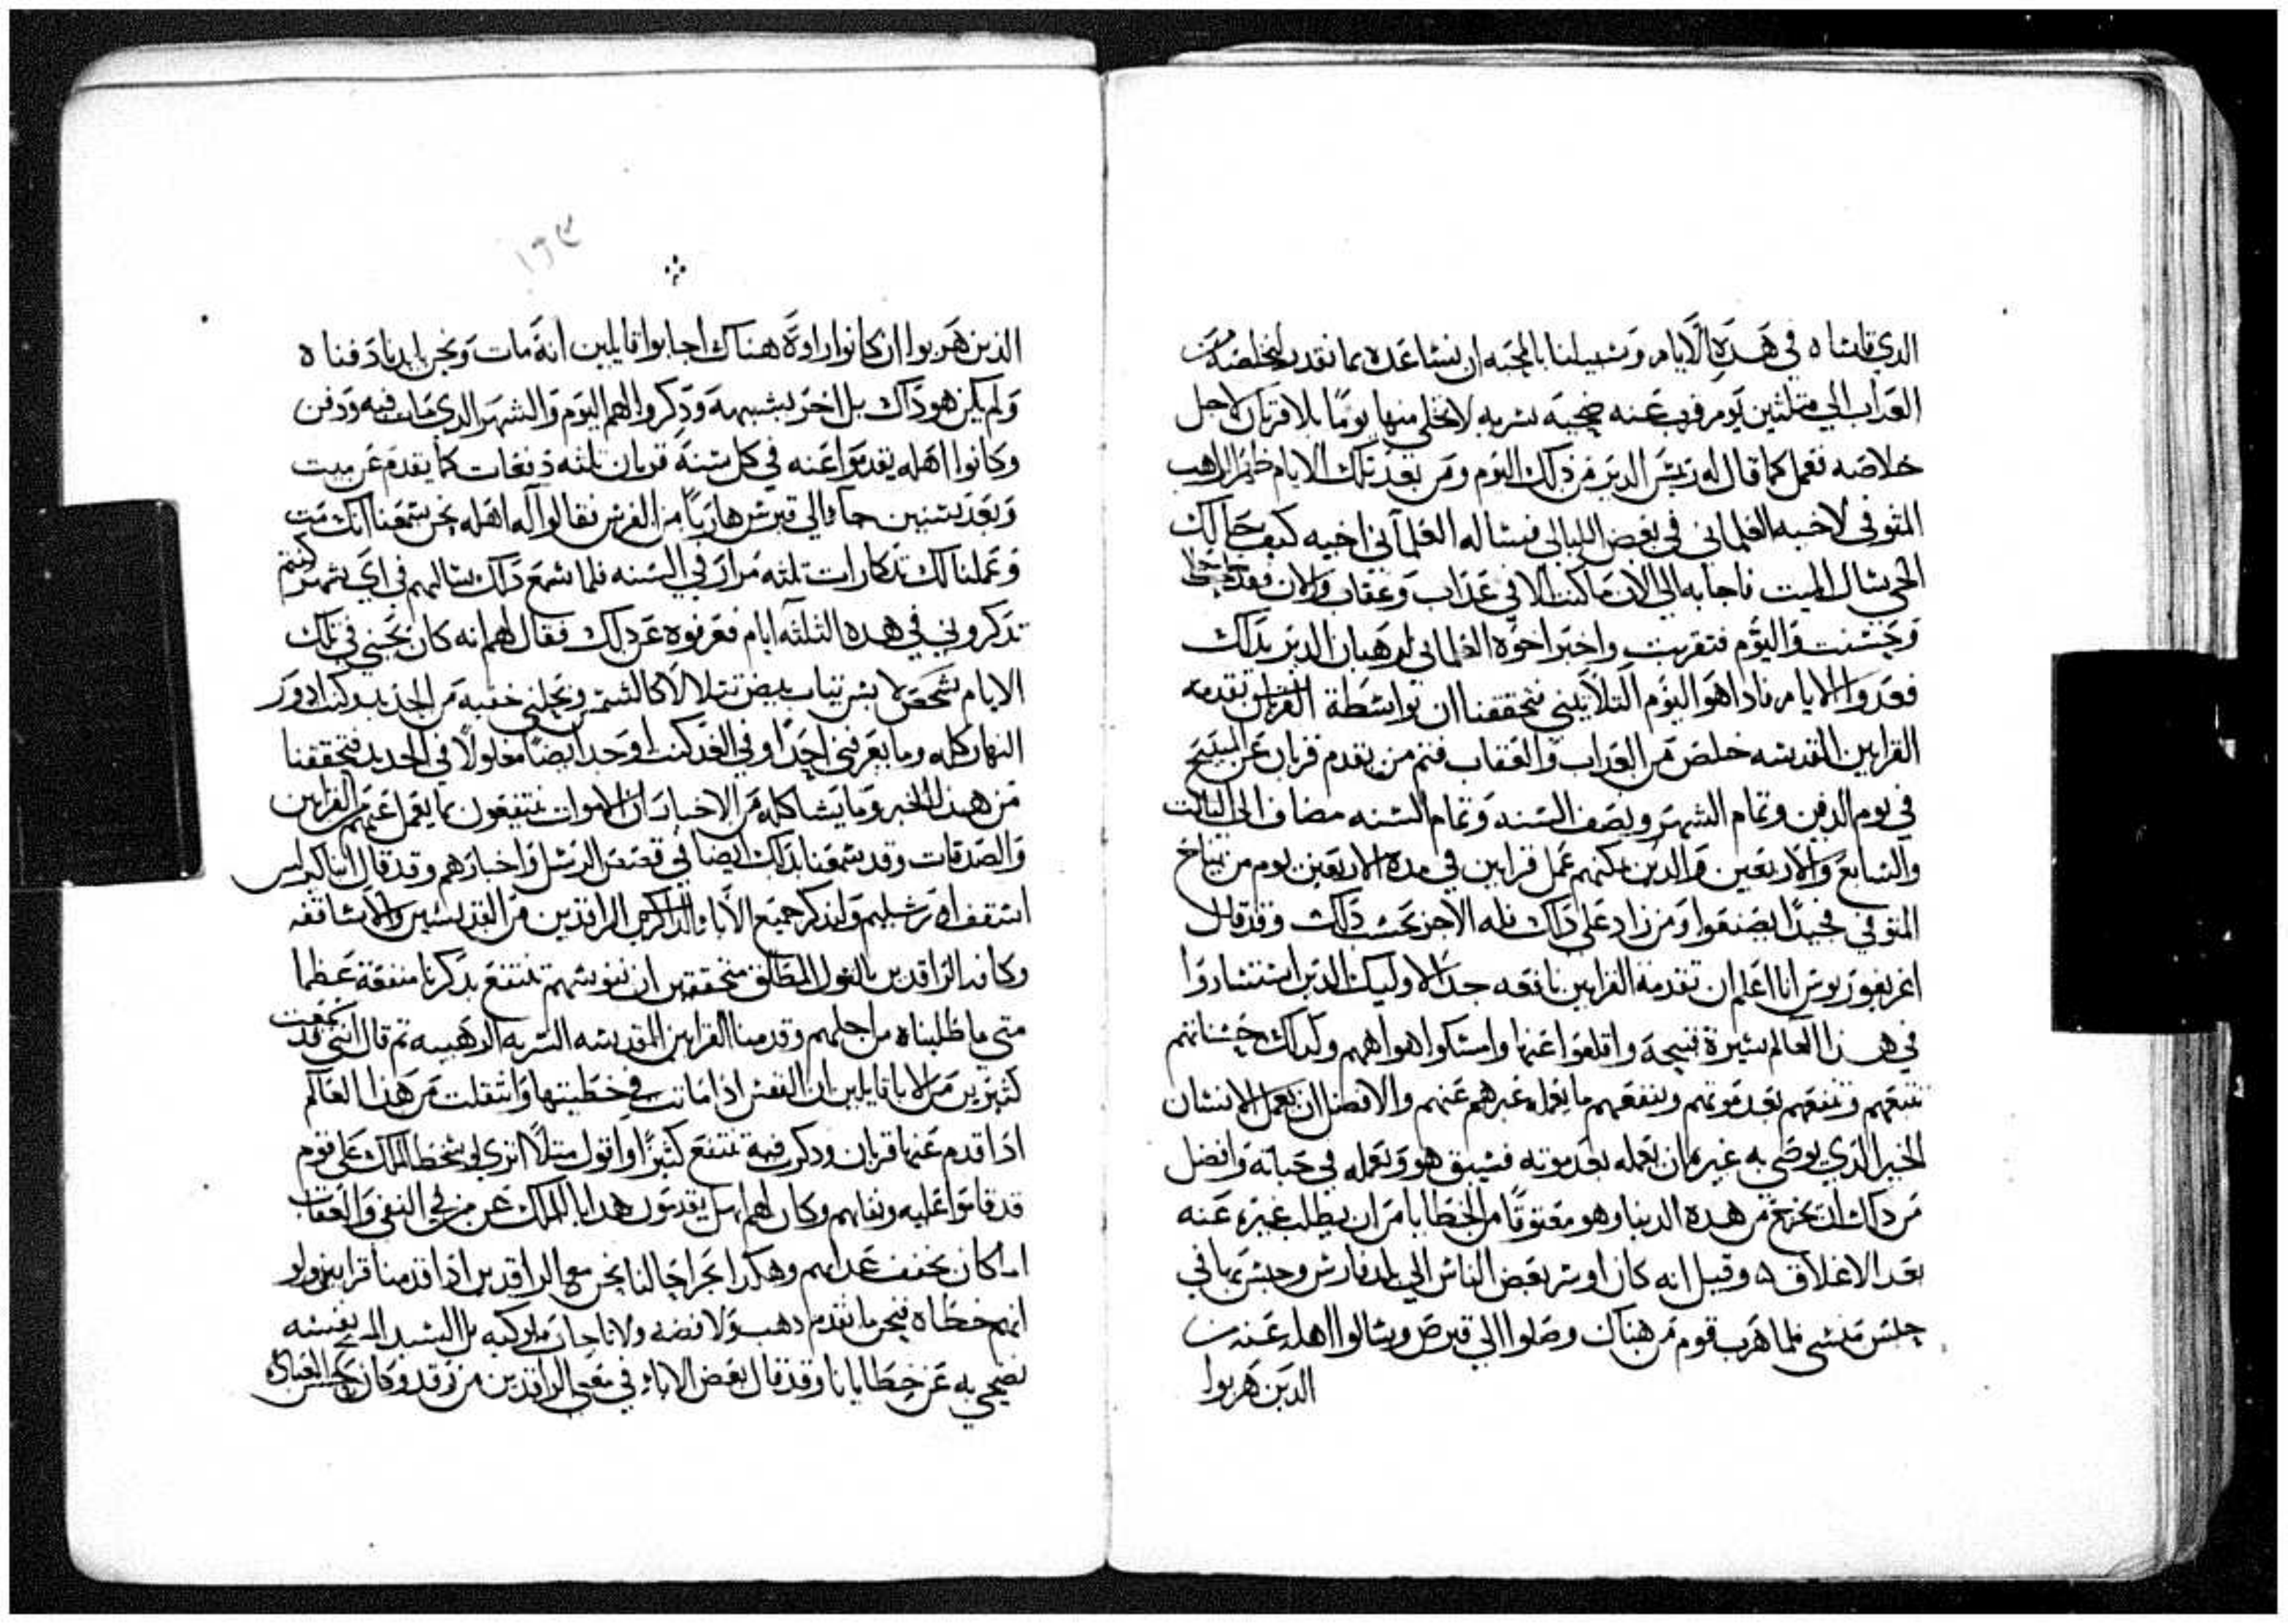 الدي قاشاه في هده الايام وسبيلنا بالمحبه ان نساعده بما نقدر لنخلصه من
العداب الي متلثين يوم قرب عنه ضحيه سريه لا تخلي منها يومًا بلا قربان لاجل
خلاصه ففعل كما قال له ريس الدير من دلك اليوم ومن بعد تلك الايام ظهر الراهب
المتوفي لاخيه العلماني في بعض الليالي فيساله العلماني اخيه كيف حالك
الحي يسال الميت فاجابه الي الان ما كنت الا في عداب وعقاب والان فقد
وحسنت واليوم فتقربت واخبر اخوه العلماني لرهبان الدير بدلك
فعدوا الايام فادا هو اليوم التلاتيني فتحققنا ان بواسطة القربان تقدمه
القرابين المقدسه خلص من العداب والعقاب فتم من يقدم قربان عن المسيح
في يوم الدفن وتمام الشهر ونصف السنه وتمام السنه مضاف الي التالت
والسابع والاربعين والدين يمكنهم عمل قرابين في مدة الاربعين يوم من نياح
المتوفي فجيدًا يصنعوا ومن زاد علي داك فله الاجر بحسب دلك وقد قال
اغريغوريوس انا اعلم ان تقدمة القرابين نافعه جدًا لاوليك الدين استشاروا
في هدا العالم سيرة قبيحة واقلعوا عنها وامسكوا اهواهم وكدلك حسناتهم
تتبعهم وتنفعهم بعد موتهم وينفعهم ما يعمله غيرهم عنهم والافضل ان يعمل الانسان
الخير الدي يوصي به غيره ان يعمله بعد موته فيسبق هو ويعمله في حياته وافضل
من داك ان تخرج من هده الدنيا وهو معتوقًا من الخطايا من ان يطلب غيره عنه
بعد الاغلاق ٥ وقيل انه كان اوسر بعض الناس الي بلد فارس وحبس بها في
حبس منسي فلما هرب قوم من هناك وصلوا الي قبرص وسالوا اهله عنه من
الدين هربوا
١٩٤
الدين هربوا ان كانوا راوة هناك اجابوا قايلين انه مات ونحن بايدينا دفناه
ولم يكن هو داك بل اخر بشبهه ودكروا لهم اليوم والشهر الدي مات فيه ودفن
وكانوا اهله يقدموا عنه في كل سنة قربان تلته دفعات كما يقدم عن ميت
وبعد سنين جاء الي قبرس هاربًا من الفرس فقالوا له اهله نحن سمعنا انك مت
وعملنا لك تدكارات تلته مرار في السنه فلما سمع داك سالهم في اي شهر كنتم
تدكروني في هده التلته ايام فعرفوه عن دلك فقال لهم انه كان يجيني في تلك
الايام شخص لابس تياب بيض تتلالا كالشمس ويحلني خفية من الحديد وكنت ادور
النهار كله وما يعرفني احدًا وفي الغد كنت اوجد ايضًا مغلولًا في الحديد فتحققنا
من هدا الخبر وما يشاكله من الاخبار ان الاموات ينتفعون بما يعمل عنهم من القرابين
والصدقات وقد سمعنا بدلك ايضًا في قصص الرسل واخبارهم وقد قال ايضا كيرلس
اسقف اورشليم ولندكر جميع الاباء الداكرين الراقدين من القديسين والاساقفه
وكافه الراقدين بالقول المطلق متحققين ان نفوسهم تنتفع بدكرنا منفعة عظما
متي ما طلبناه من اجلهم وقدمنا القرابين المقدسه السريه الرهيبه تم قال انني قد سمعت
كتيرين من الابا قايلين ان النفس ادا ماتت في خطيتها وانتقلت من هدا العالم
ادا قدم عنها قربان ودكرت فيه تنتفع كتيرًا واقول متلًا اتري لو سخط الملك علي قوم
قد قاموا عليه ونفاهم وكان لهم اهل يقدمون هدايا للملك عن من في النفي والعقاب
اما كان يخفف عدابهم وهكدا يجرا حالنا نحن مع الراقدين ادا قدمنا قرابين ولو
انهم خطاه فنحن ما نقدم دهب ولا فضه ولا تاجات ملوكيه بل السيد المسيح نفسه
نضحي به عن خطايانا وقد قال بعض الاباء في معني الراقدين من رقد وكان بحسن العباده